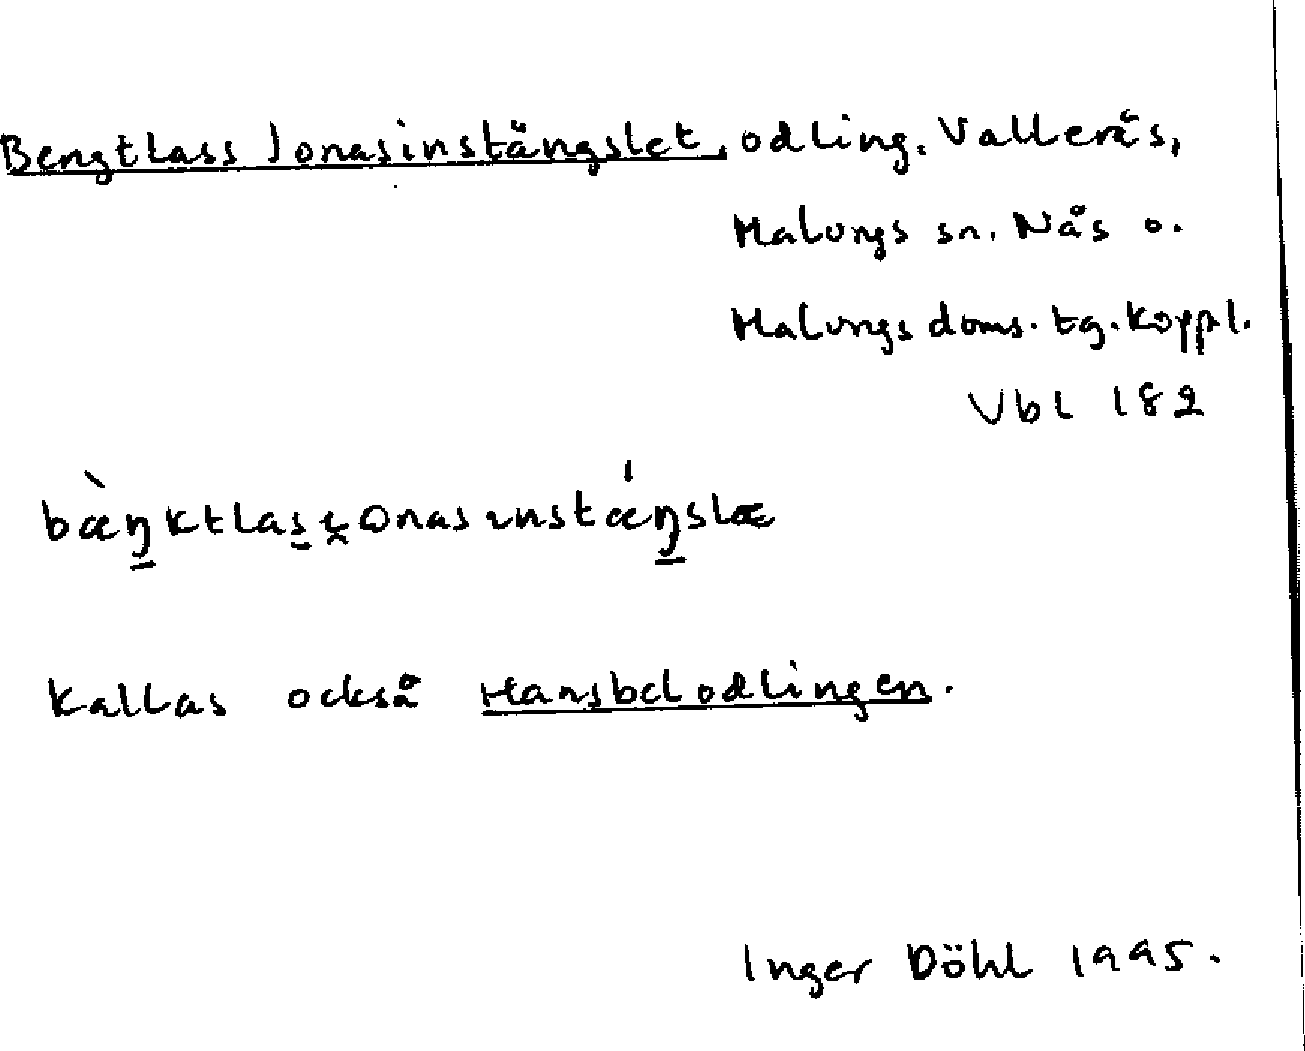 Bengtlass Jonasinstängslet, odling. Vallerås,
Malungs sn. Näs o.
Malungs doms. tg. Koppl.
Vbl 182
bæ̀ŋktlas onasınstǽŋslæ
Kallas också Hansbelodlingen.
Inger Döhl 1995.